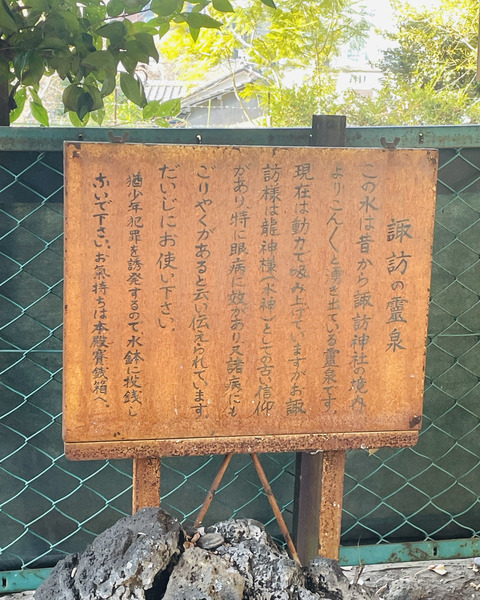 諏訪の靈泉
この水は昔から諏訪神社の境内
よりこん〱と湧き出ている靈泉です
現在は動力で吸み上げていますがお諏
訪様は龍神様(水神)としての古い信仰
があり、特に眼病に效があり又諸病にも
ごりやくがあると云い伝えられています。
だいじにお使い下さい。
猶少年犯罪を誘発するので、水鉢に投銭し
ないで下さい。お気持ちは本殿賽銭箱へ。